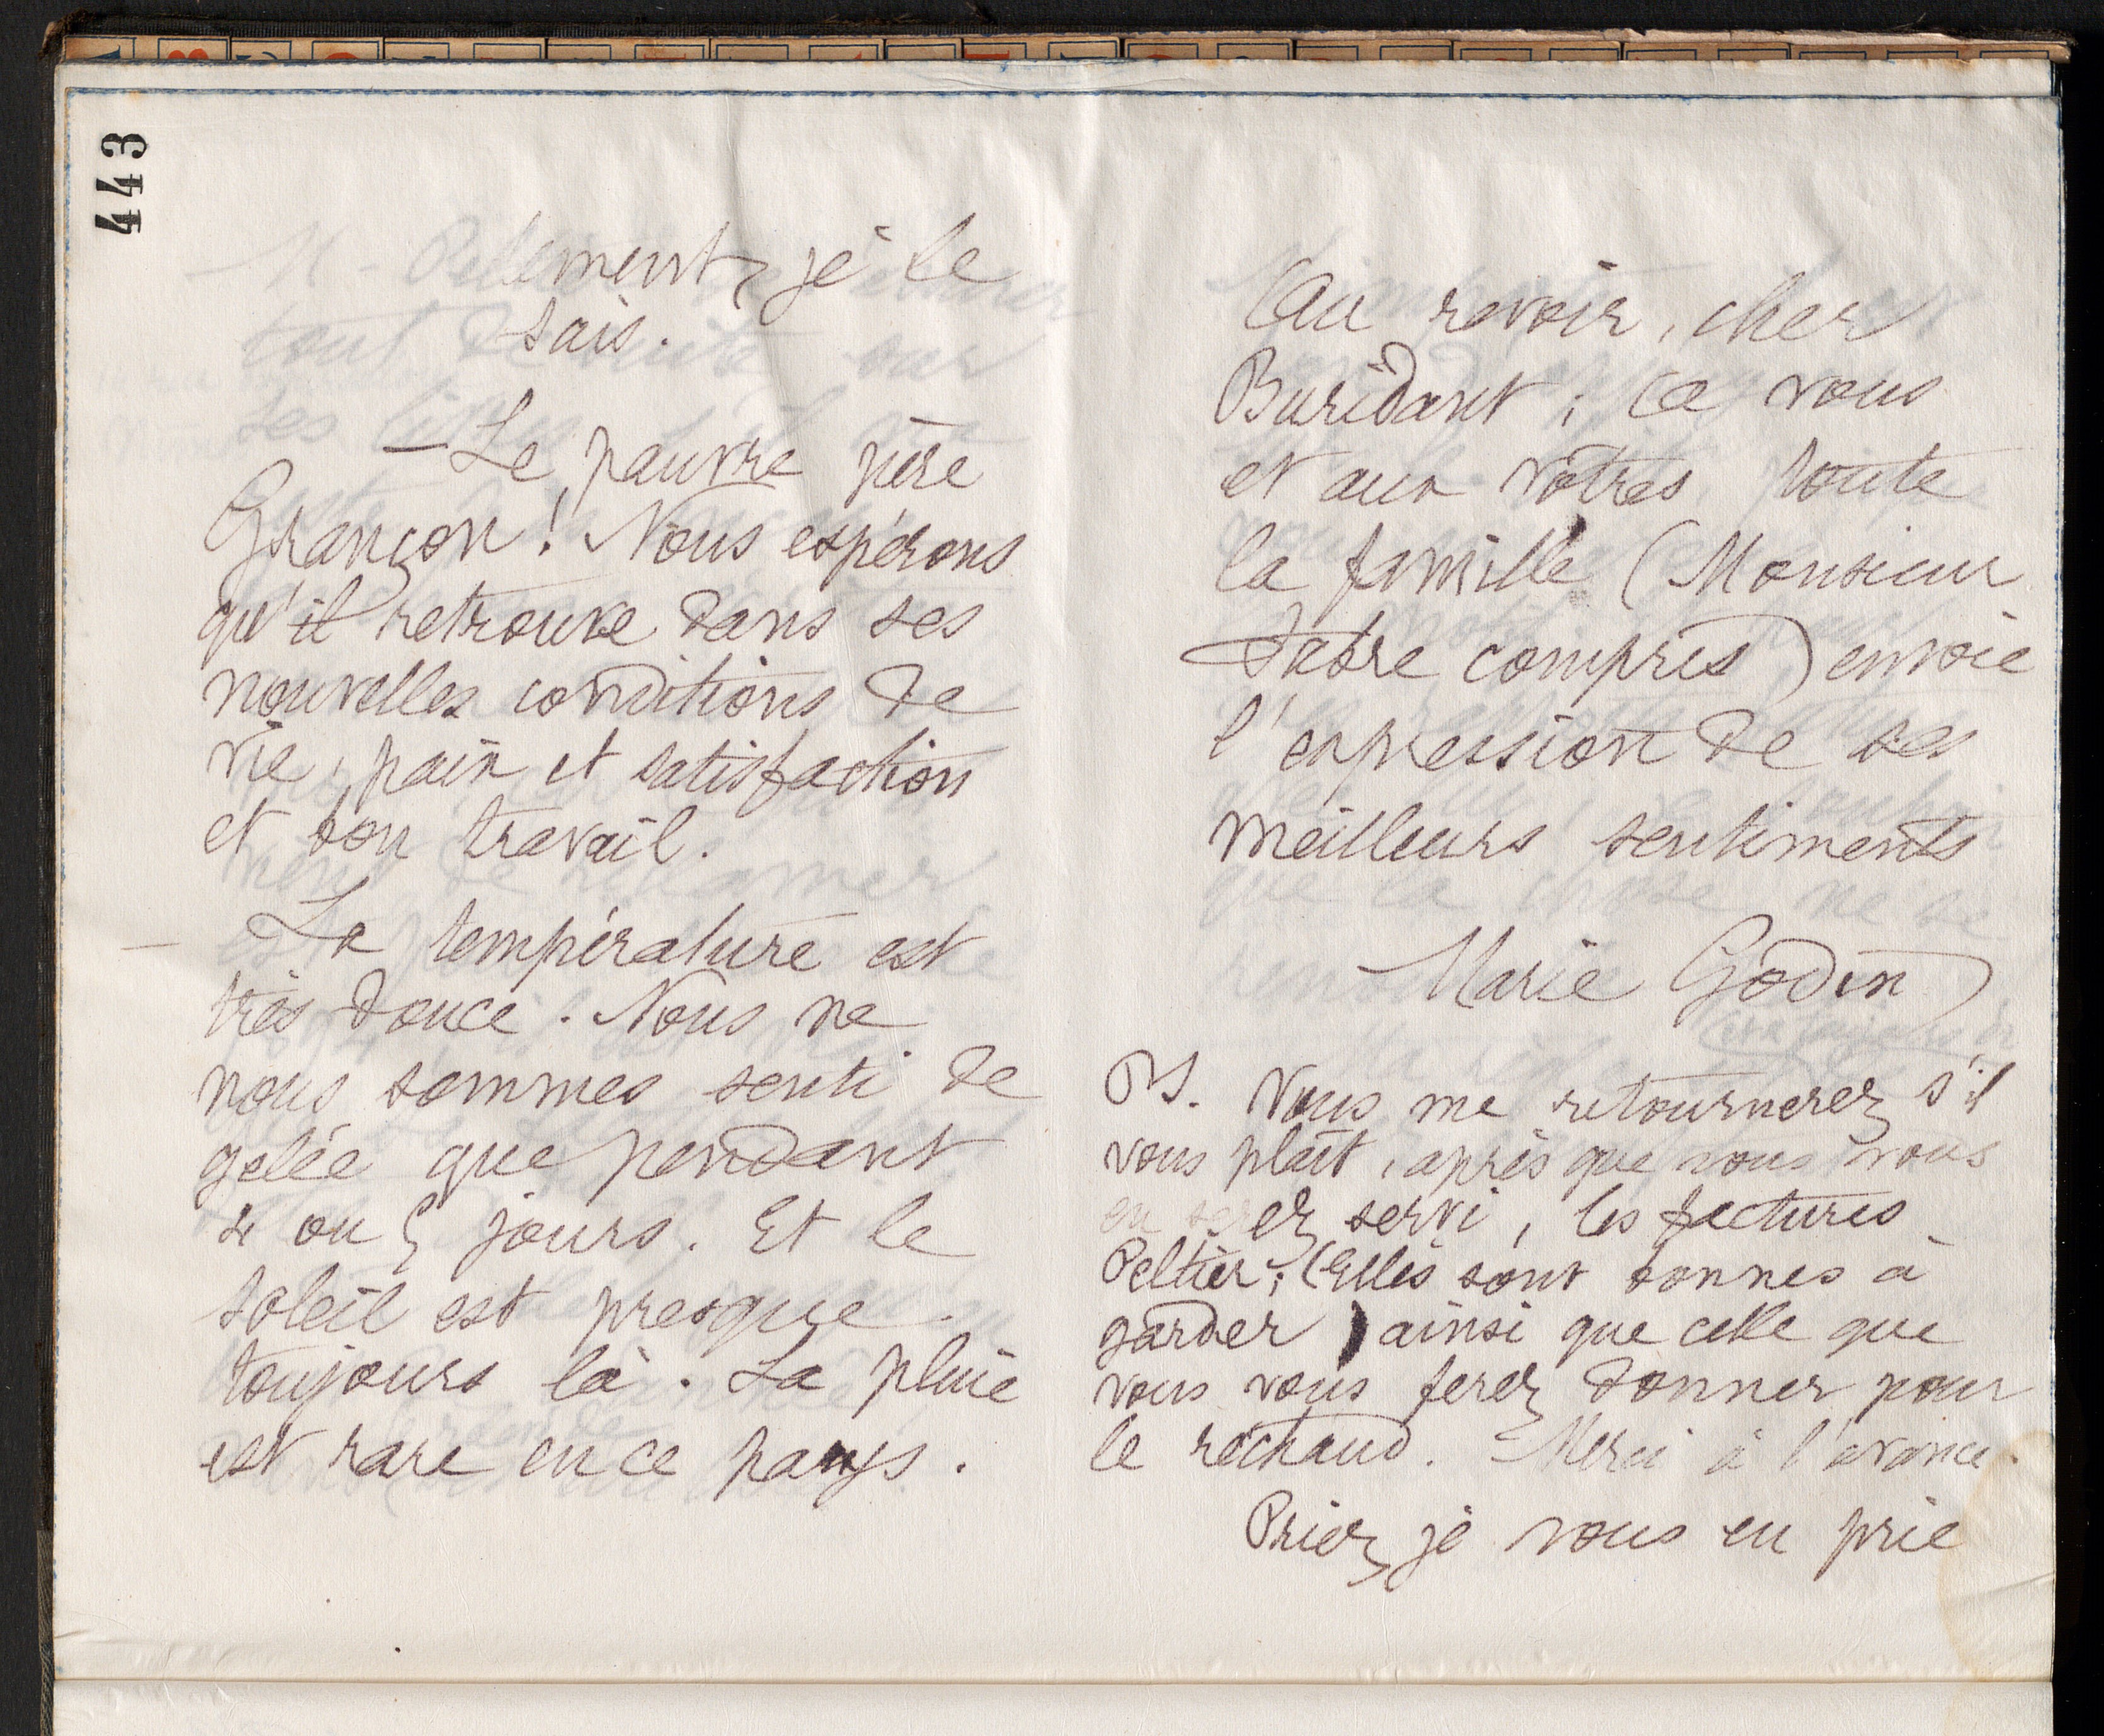 443
lement, je le
sais.
— Le pauvre père
Grançon ! Nous espérons
qu'il retrouve dans ses
nouvelles conditions de
vie, paix et satisfaction
et bon travail.
— La température est
très douce. Nous ne
nous sommes senti de
gelée que pendant
4 ou 5 jours. Et le
soleil est presque
toujours là. La pluie
est rare en ce pays.
Au revoir, cher
Buridant ; à vous
et aux vôtres toute
la famille (Monsieur
Fabre compris) envoie
l'expression de ses
meilleurs sentiments
Marie Godin
PS. Vous me retournerez s'il
vous plaît, après que vous vous
en serez servi, les factures
Peltier ; (Elles sont bonnes à
garder) ainsi que celle que
vous vous ferez donner pour
le réchaud. Merci à l'avance.
Priez je vous en prie